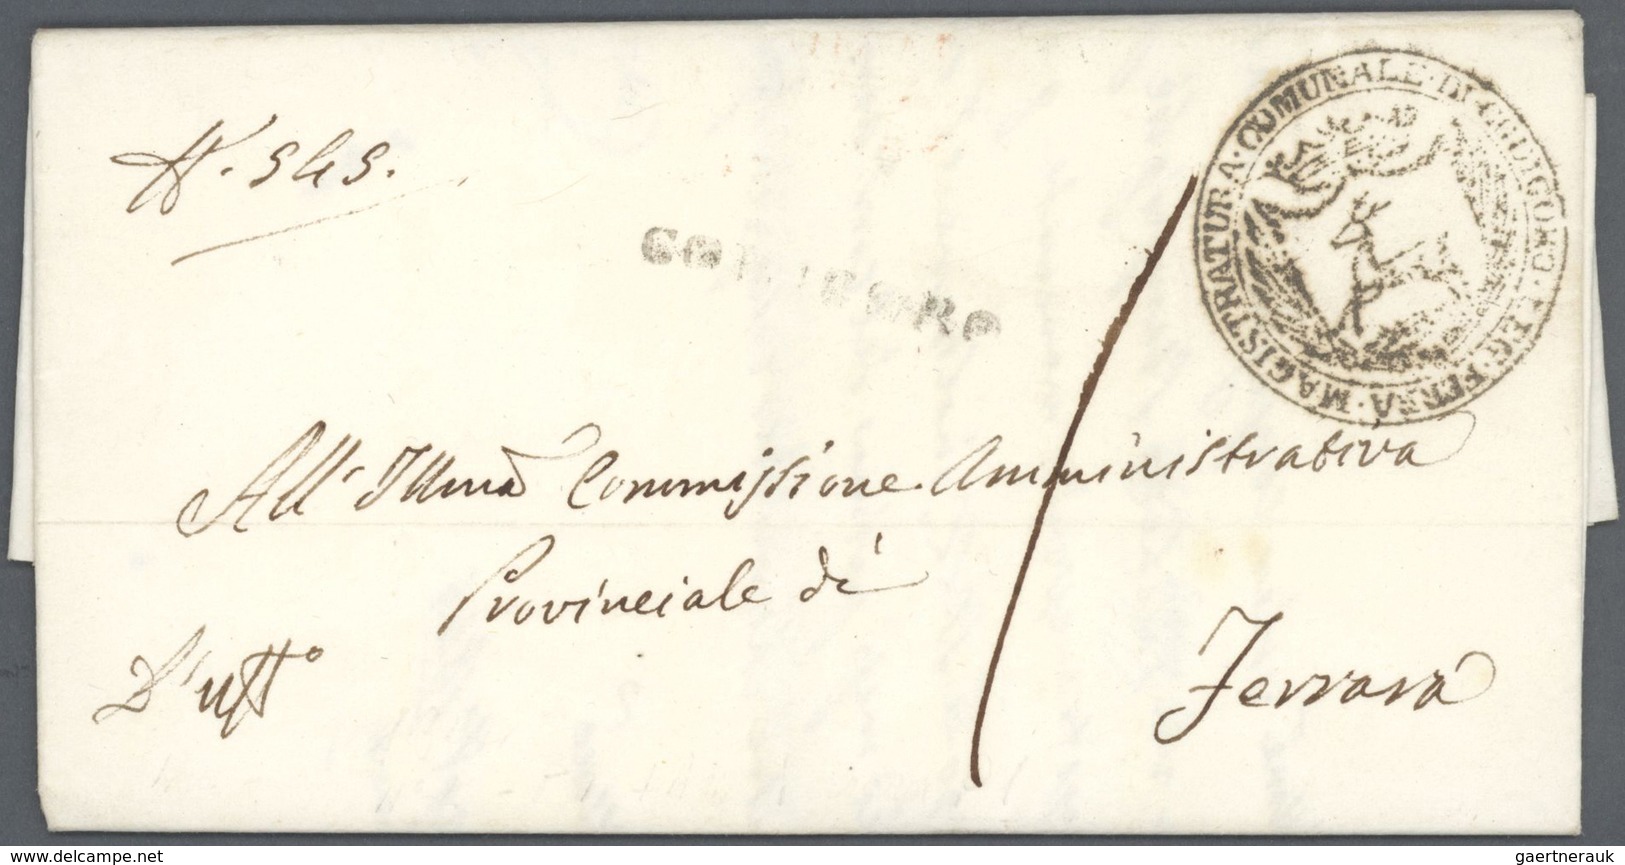 N. 545.
MAGISTRATURA · COMUNALE · DI · CODIGORO · LEG · FERRA ·
CODIGORO
All' Illma Commissione Amministrativa
Provinciale di
Ferrara
D'uffo
www.delcampe.net
gaertnerauk